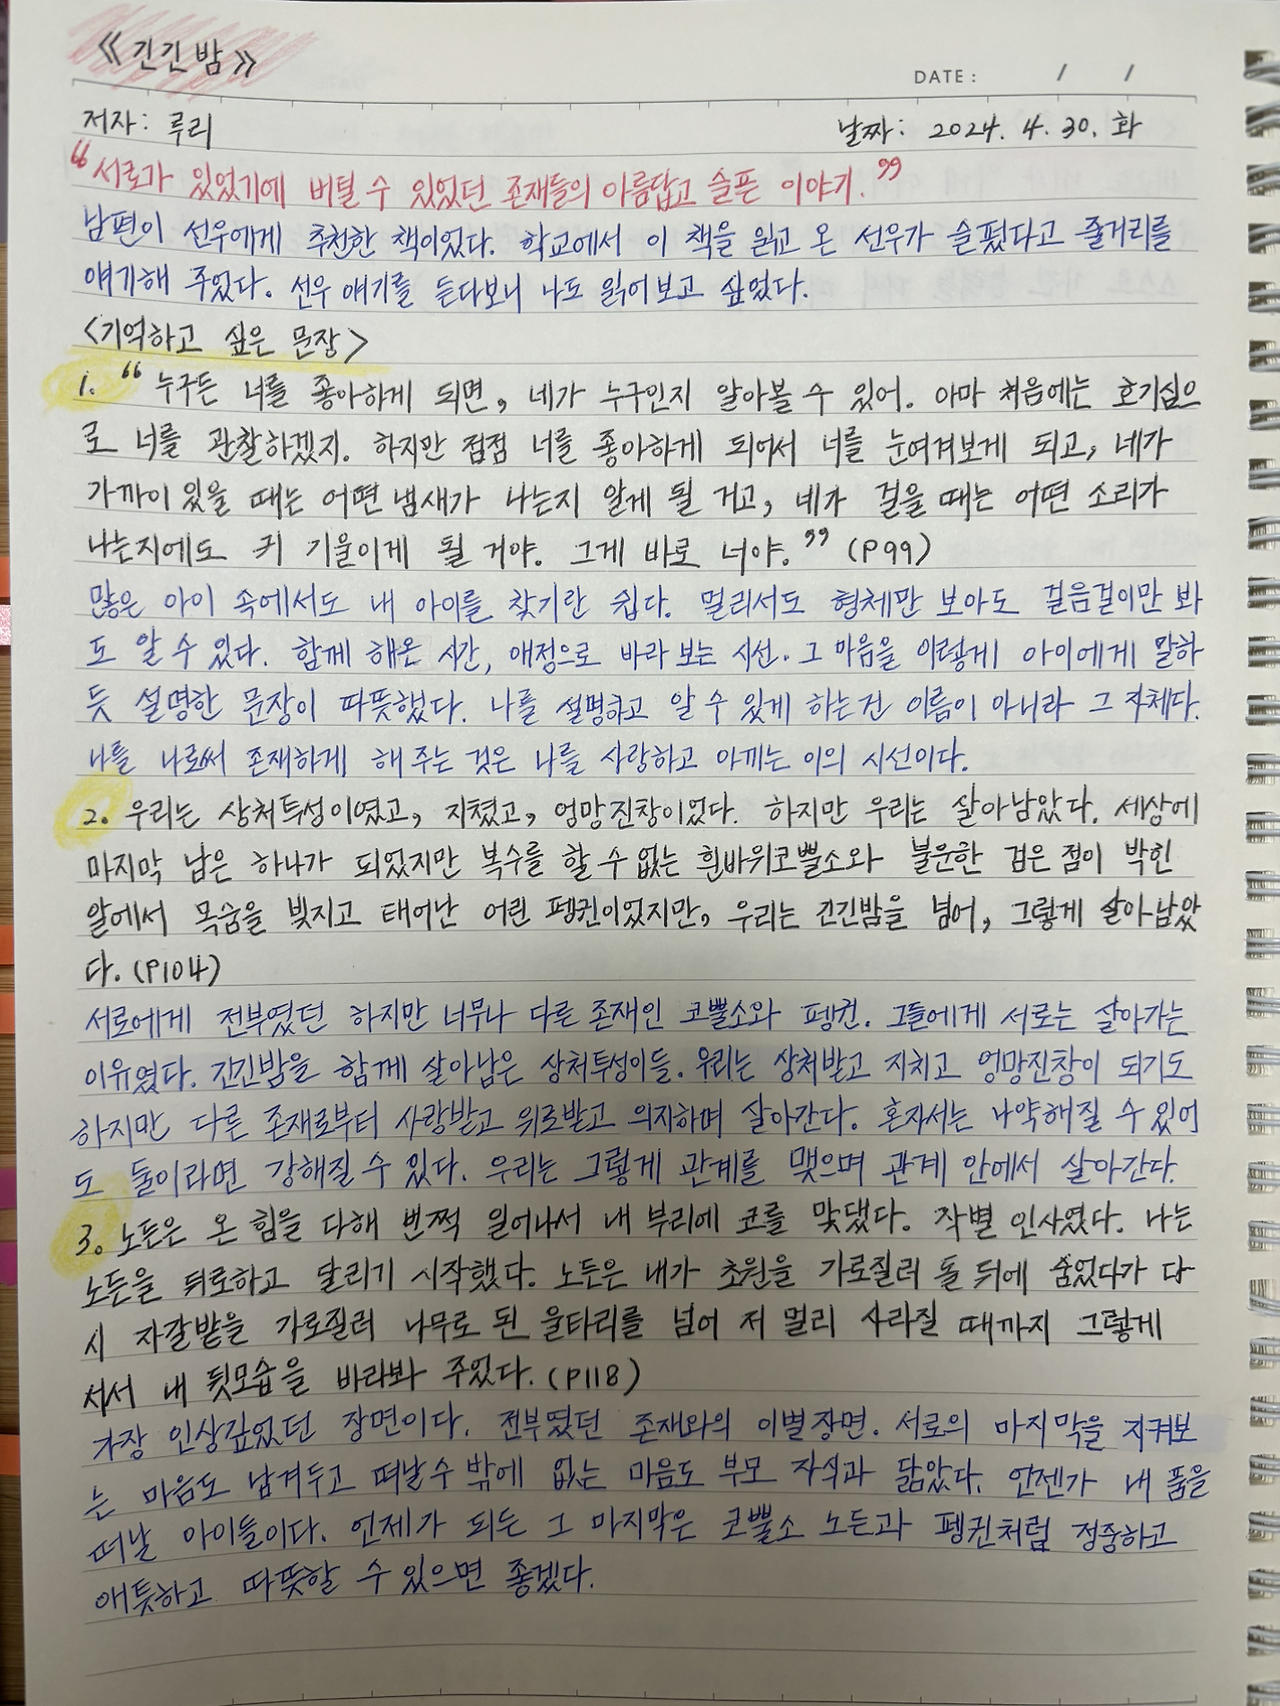 《긴긴밤》
DATE : / /
저자: 루리 날짜: 2024. 4. 30. 화
“서로가 있었기에 버틸 수 있었던 존재들의 아름답고 슬픈 이야기.”
남편이 선우에게 추천한 책이었다. 학교에서 이 책을 읽고 온 선우가 슬펐다고 줄거리를
얘기해 주었다. 선우 얘기를 듣다보니 나도 읽어보고 싶었다.
<기억하고 싶은 문장>
1. “누구든 너를 좋아하게 되면, 네가 누구인지 알아볼 수 있어. 아마 처음에는 호기심으
로 너를 관찰하겠지. 하지만 점점 너를 좋아하게 되어서 너를 눈여겨보게 되고, 네가
가까이 있을 때는 어떤 냄새가 나는지 알게 될 거고, 네가 걸을 때는 어떤 소리가
나는지에도 귀 기울이게 될 거야. 그게 바로 너야.” (P99)
많은 아이 속에서도 내 아이를 찾기란 쉽다. 멀리서도 형체만 보아도 걸음걸이만 봐
도 알 수 있다. 함께 해온 시간, 애정으로 바라 보는 시선. 그 마음을 이렇게 아이에게 말하
듯 설명한 문장이 따뜻했다. 나를 설명하고 알 수 있게 하는건 이름이 아니라 그 자체다.
나를 나로써 존재하게 해 주는 것은 나를 사랑하고 아끼는 이의 시선이다.
2. 우리는 상처투성이였고, 지쳤고, 엉망진창이었다. 하지만 우리는 살아남았다. 세상에
마지막 남은 하나가 되었지만 복수를 할 수 없는 흰바위코뿔소와 불운한 검은 점이 박힌
알에서 목숨을 빚지고 태어난 어린 펭귄이었지만, 우리는 긴긴밤을 넘어, 그렇게 살아남았
다. (P104)
서로에게 전부였던 하지만 너무나 다른 존재인 코뿔소와 펭귄. 그들에게 서로는 살아가는
이유였다. 긴긴밤을 함께 살아남은 상처투성이들. 우리는 상처받고 지치고 엉망진창이 되기도
하지만 다른 존재로부터 사랑받고 위로받고 의지하며 살아간다. 혼자서는 나약해질 수 있어
도 둘이라면 강해질 수 있다. 우리는 그렇게 관계를 맺으며 관계 안에서 살아간다.
3. 노든은 온 힘을 다해 번쩍 일어나서 내 부리에 코를 맞댔다. 작별 인사였다. 나는
노든을 뒤로하고 달리기 시작했다. 노든은 내가 초원을 가로질러 돌 뒤에 숨었다가 다
시 자갈밭을 가로질러 나무로 된 울타리를 넘어 저 멀리 사라질 때까지 그렇게
서서 내 뒷모습을 바라봐 주었다. (P118)
가장 인상깊었던 장면이다. 전부였던 존재와의 이별장면. 서로의 마지막을 지켜보
는 마음도 남겨두고 떠날수 밖에 없는 마음도 부모 자식과 닮았다. 언젠가 내 품을
떠날 아이들이다. 언제가 되든 그 마지막은 코뿔소 노든과 펭귄처럼 정중하고
애틋하고 따뜻할 수 있으면 좋겠다.